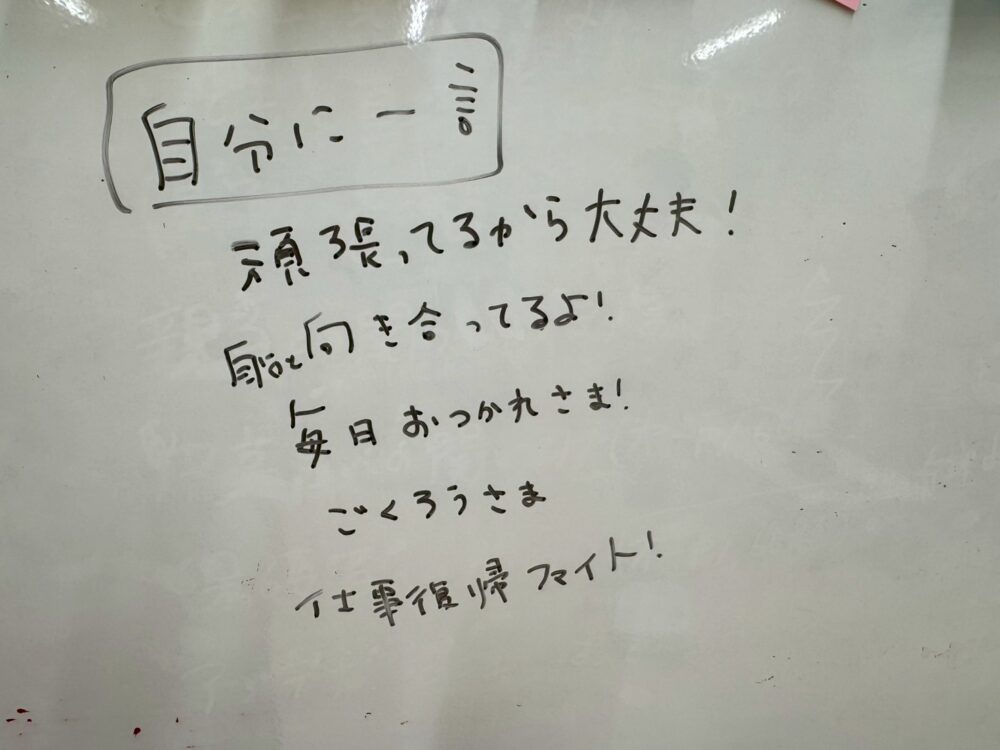 自分に一言
頑張ってるから大丈夫!
自分と向き合ってるよ!
毎日おつかれさま!
ごくろうさま
仕事復帰ファイト!